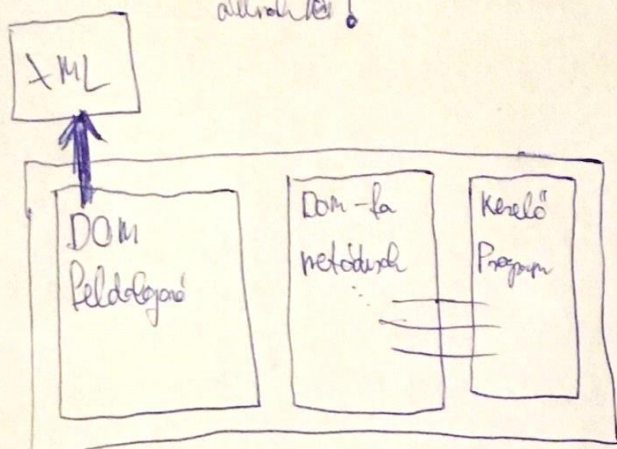 XML
DOM
feldolgozó
DOM-fa
metódusok
Kezelő
Program